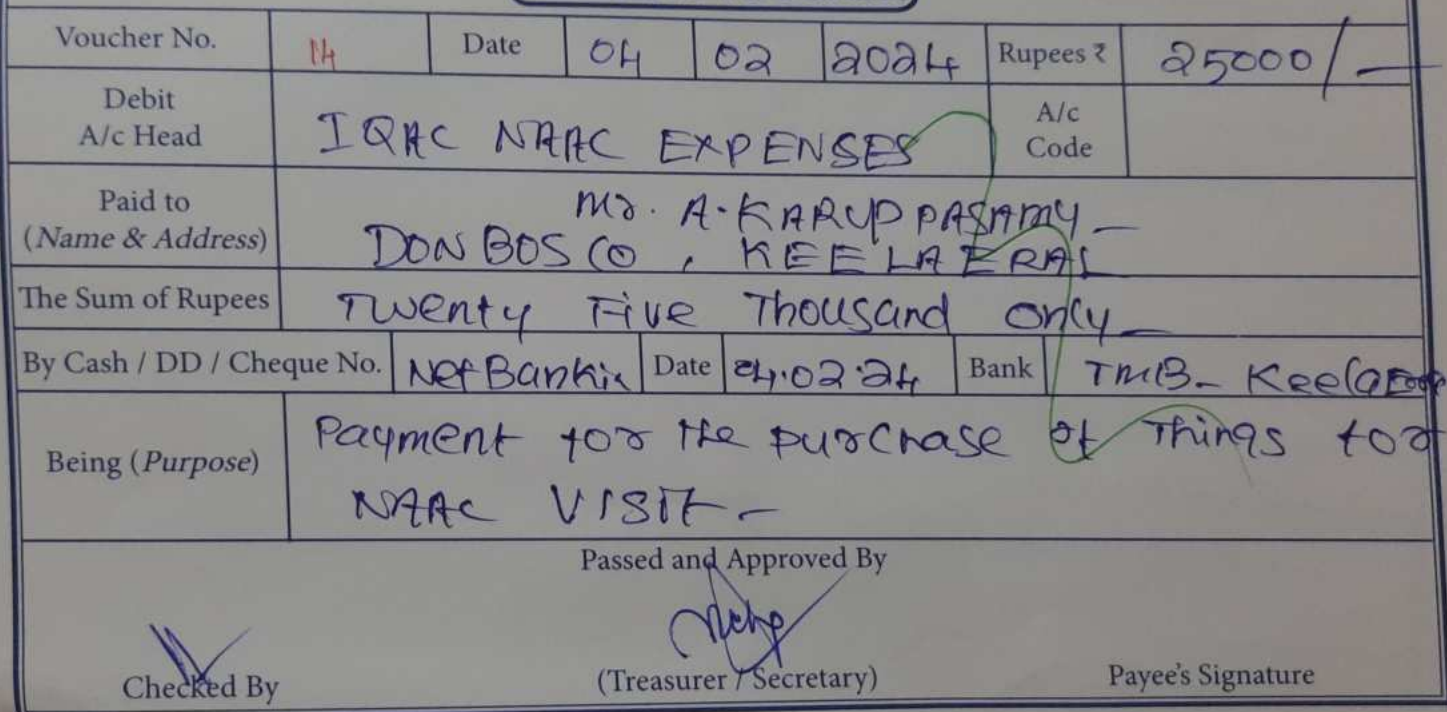 Voucher No. 14 Date 04 02 2024 Rupees ₹ 25000/-
Debit A/c Head IQAC NAAC EXPENSES A/c Code
Paid to Mr. A. KARUPPASAMY
(Name & Address) DON BOSCO, KEELAERAL
The Sum of Rupees Twenty Five Thousand only
By Cash / DD / Cheque No. Date 04.02.24 Bank TMB-
Payment for the purchase of Things for
Being (Purpose)
NAAC VISIT -
Passed and Approved By
Checked By (Treasurer / Secretary) Payee's Signature